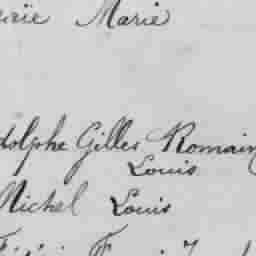 Marie
dolphe Gilles Romain
Louis
Michel Louis